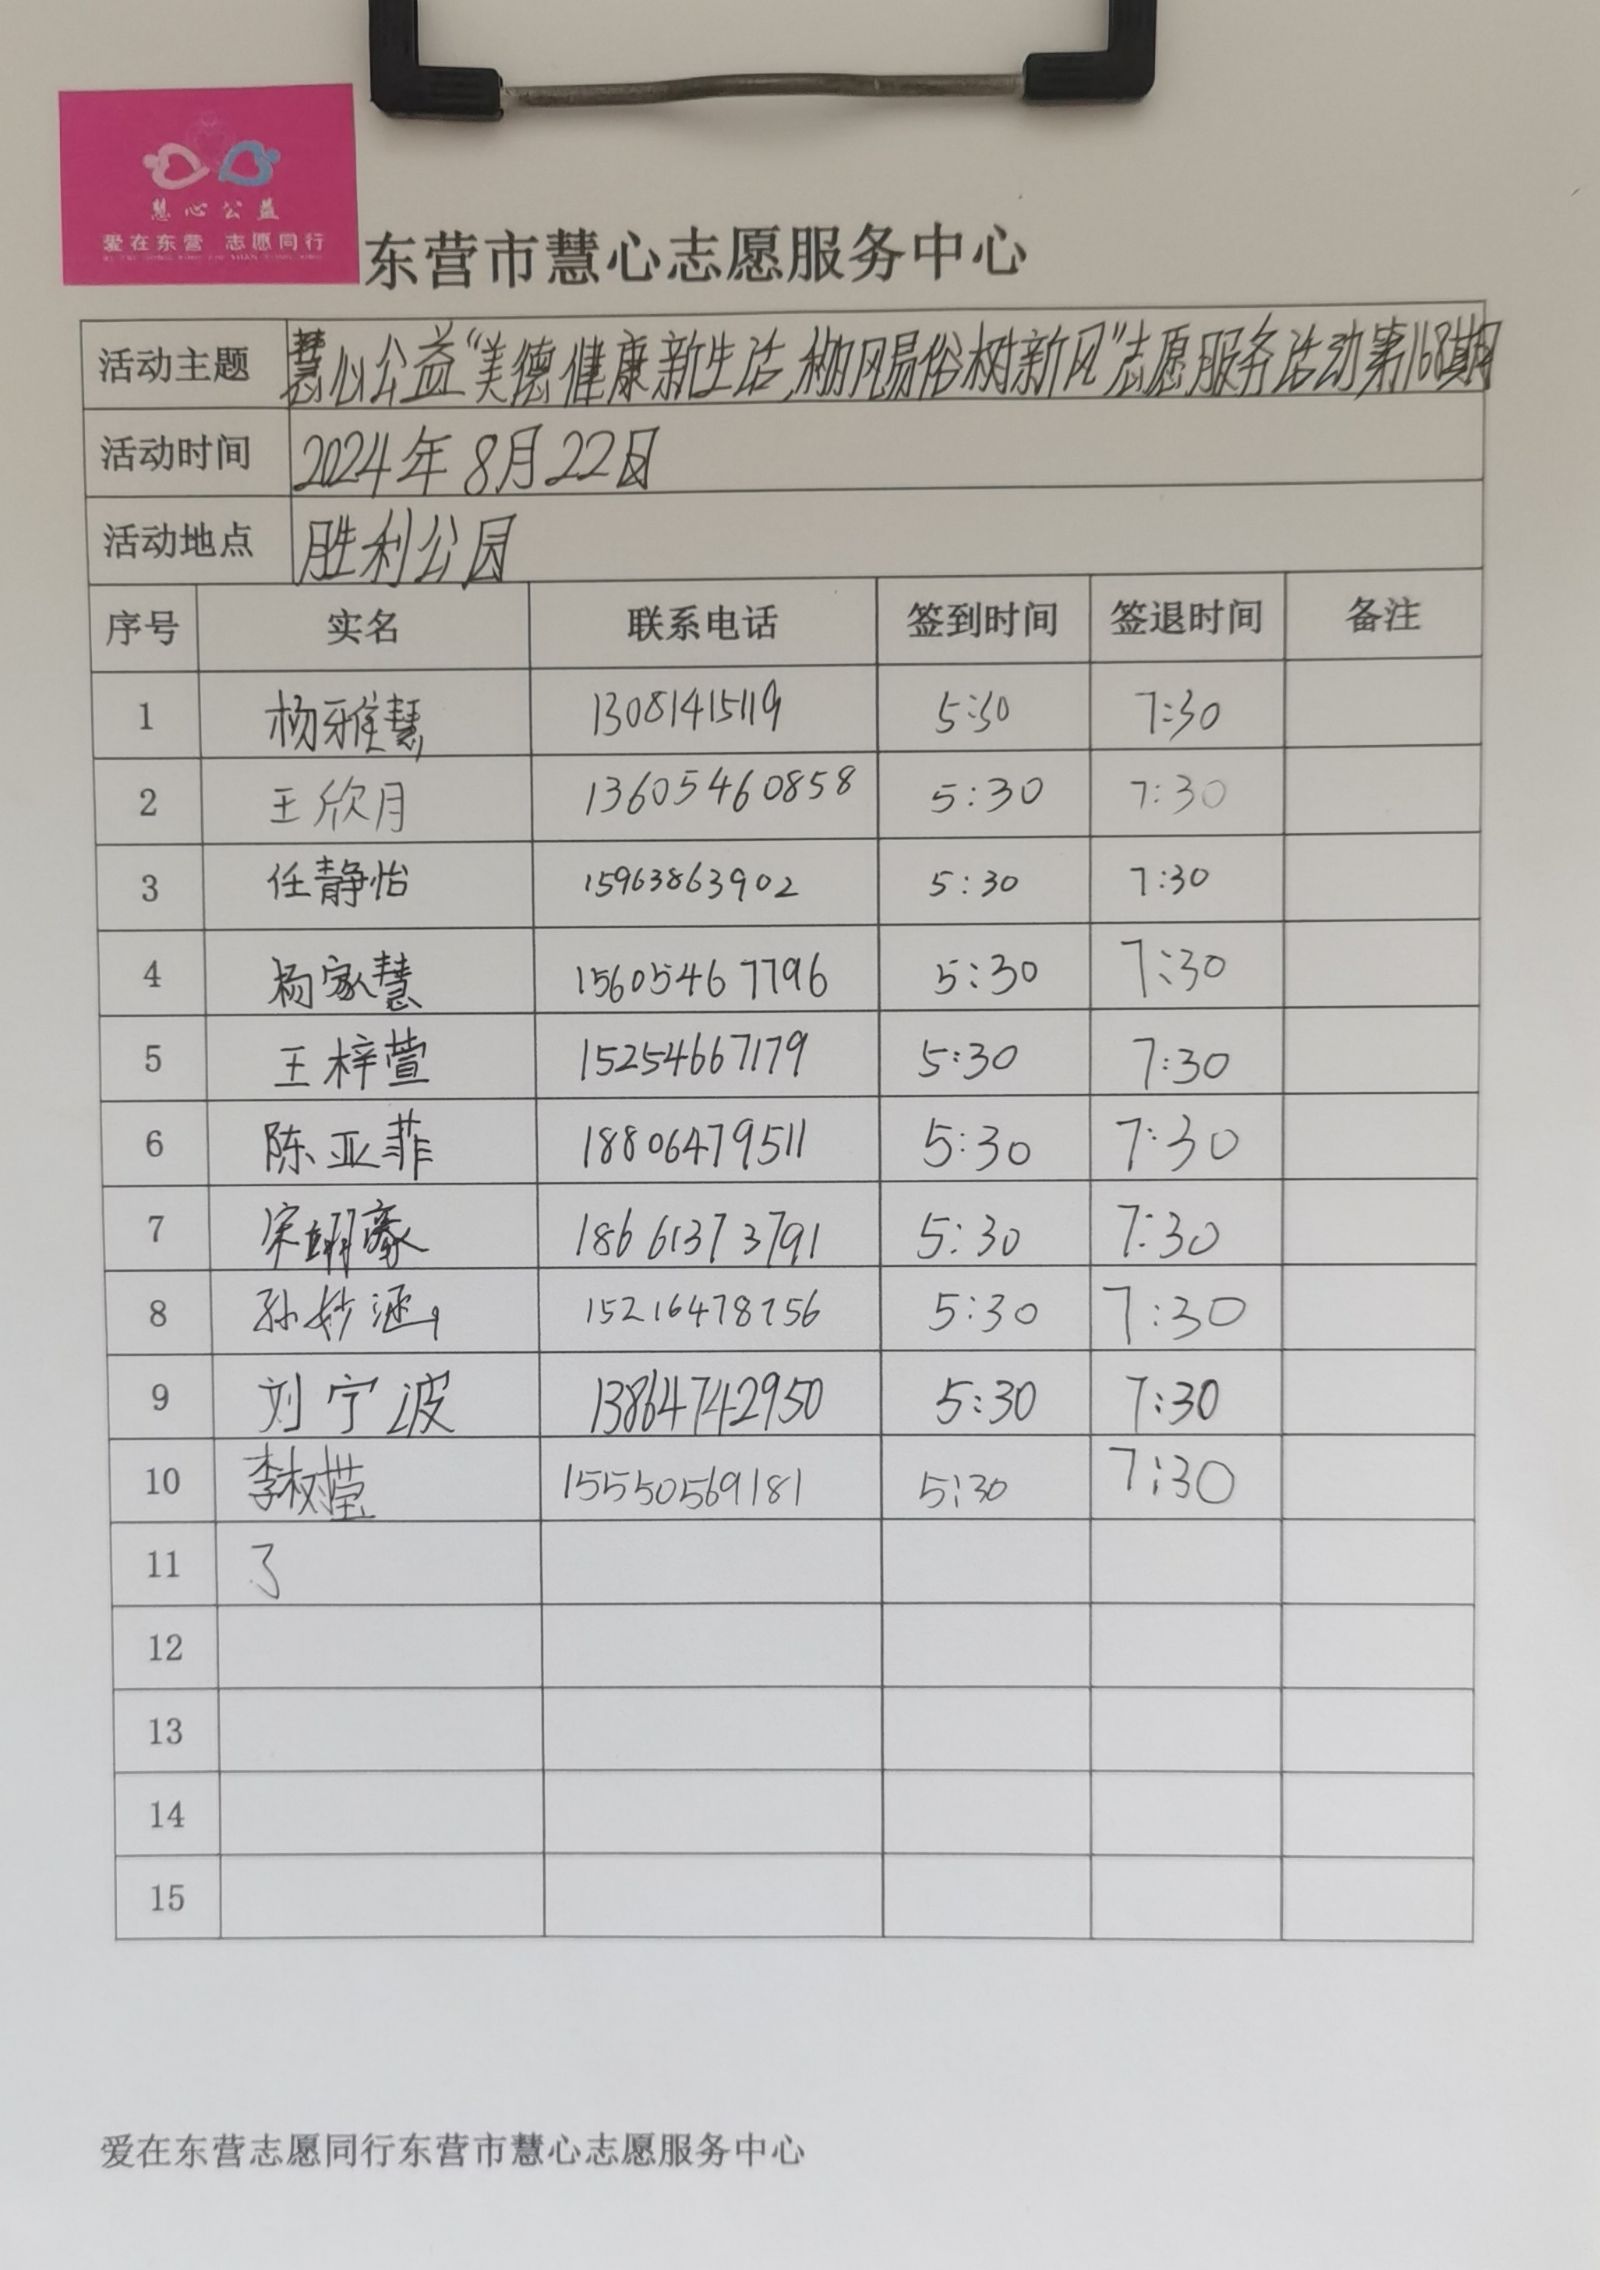 慧心公益
爱在东营 志愿同行
东营市慧心志愿服务中心
活动主题 慧心公益“美德健康新生活,移风易俗树新风”志愿服务活动第168期
活动时间 2024年8月22日
活动地点 胜利公园
序号 实名 联系电话 签到时间 签退时间 备注
1 杨雅慧 13081415119 5:30 7:30
2 王欣月 13605460858 5:30 7:30
3 任静怡 15963863902 5:30 7:30
4 杨家慧 15605467796 5:30 7:30
5 王梓萱 15254667179 5:30 7:30
6 陈亚菲 18806479511 5:30 7:30
7 宋翊豪 18661373791 5:30 7:30
8 孙妙涵 15216478756 5:30 7:30
9 刘宁波 13864742950 5:30 7:30
10 李树莹 15550569181 5:30 7:30
11
12
13
14
15
爱在东营志愿同行东营市慧心志愿服务中心